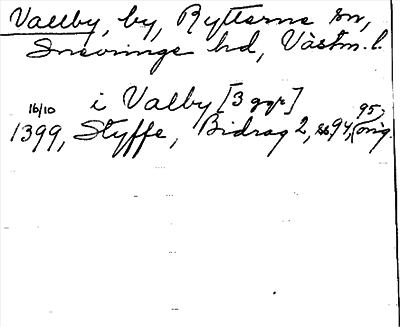 Vallby, by, Rytterne sn,
Snevringe hd, Västm. l.
i Valby [3 ggr]
16/10
1399, Styffe, Bidrag 2, ss 94, 95, (orig.